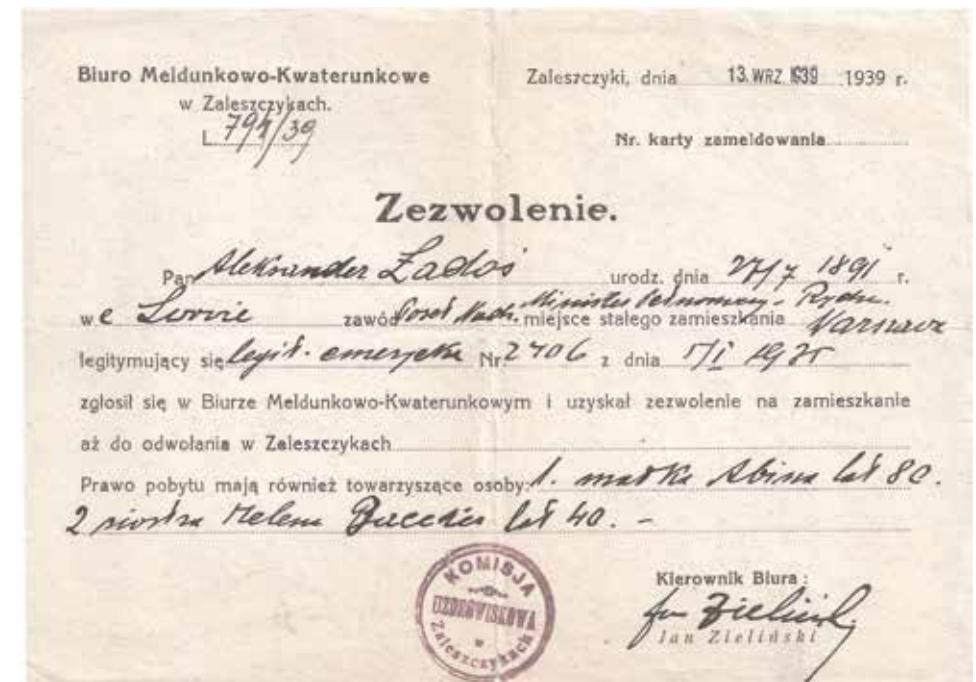 Biuro Meldunkowo-Kwaterunkowe
w Zaleszczykach.
L. 794/39
Zaleszczyki, dnia 13. WRZ. 1939 1939 r.
Nr. karty zameldowania
Zezwolenie.
Pan Aleksander Ładoś urodz. dnia 27/7 1891 r.
w e Lwowie zawód Poseł Nadz. Minister Pełnomocny miejsce stałego zamieszkania Warszawa
legitymujący się legit. emerycka Nr. 2406 z dnia
zgłosił się w Biurze Meldunkowo-Kwaterunkowym i uzyskał zezwolenie na zamieszkanie
aż do odwołania w Zaleszczykach
Prawo pobytu mają również towarzyszące osoby: 1. matka Abina lat 80.
2 siostra Helena lat 40. -
KOMISJA UZDROWISKOWA w Zaleszczykach
Kierownik Biura:
Jan Zieliński